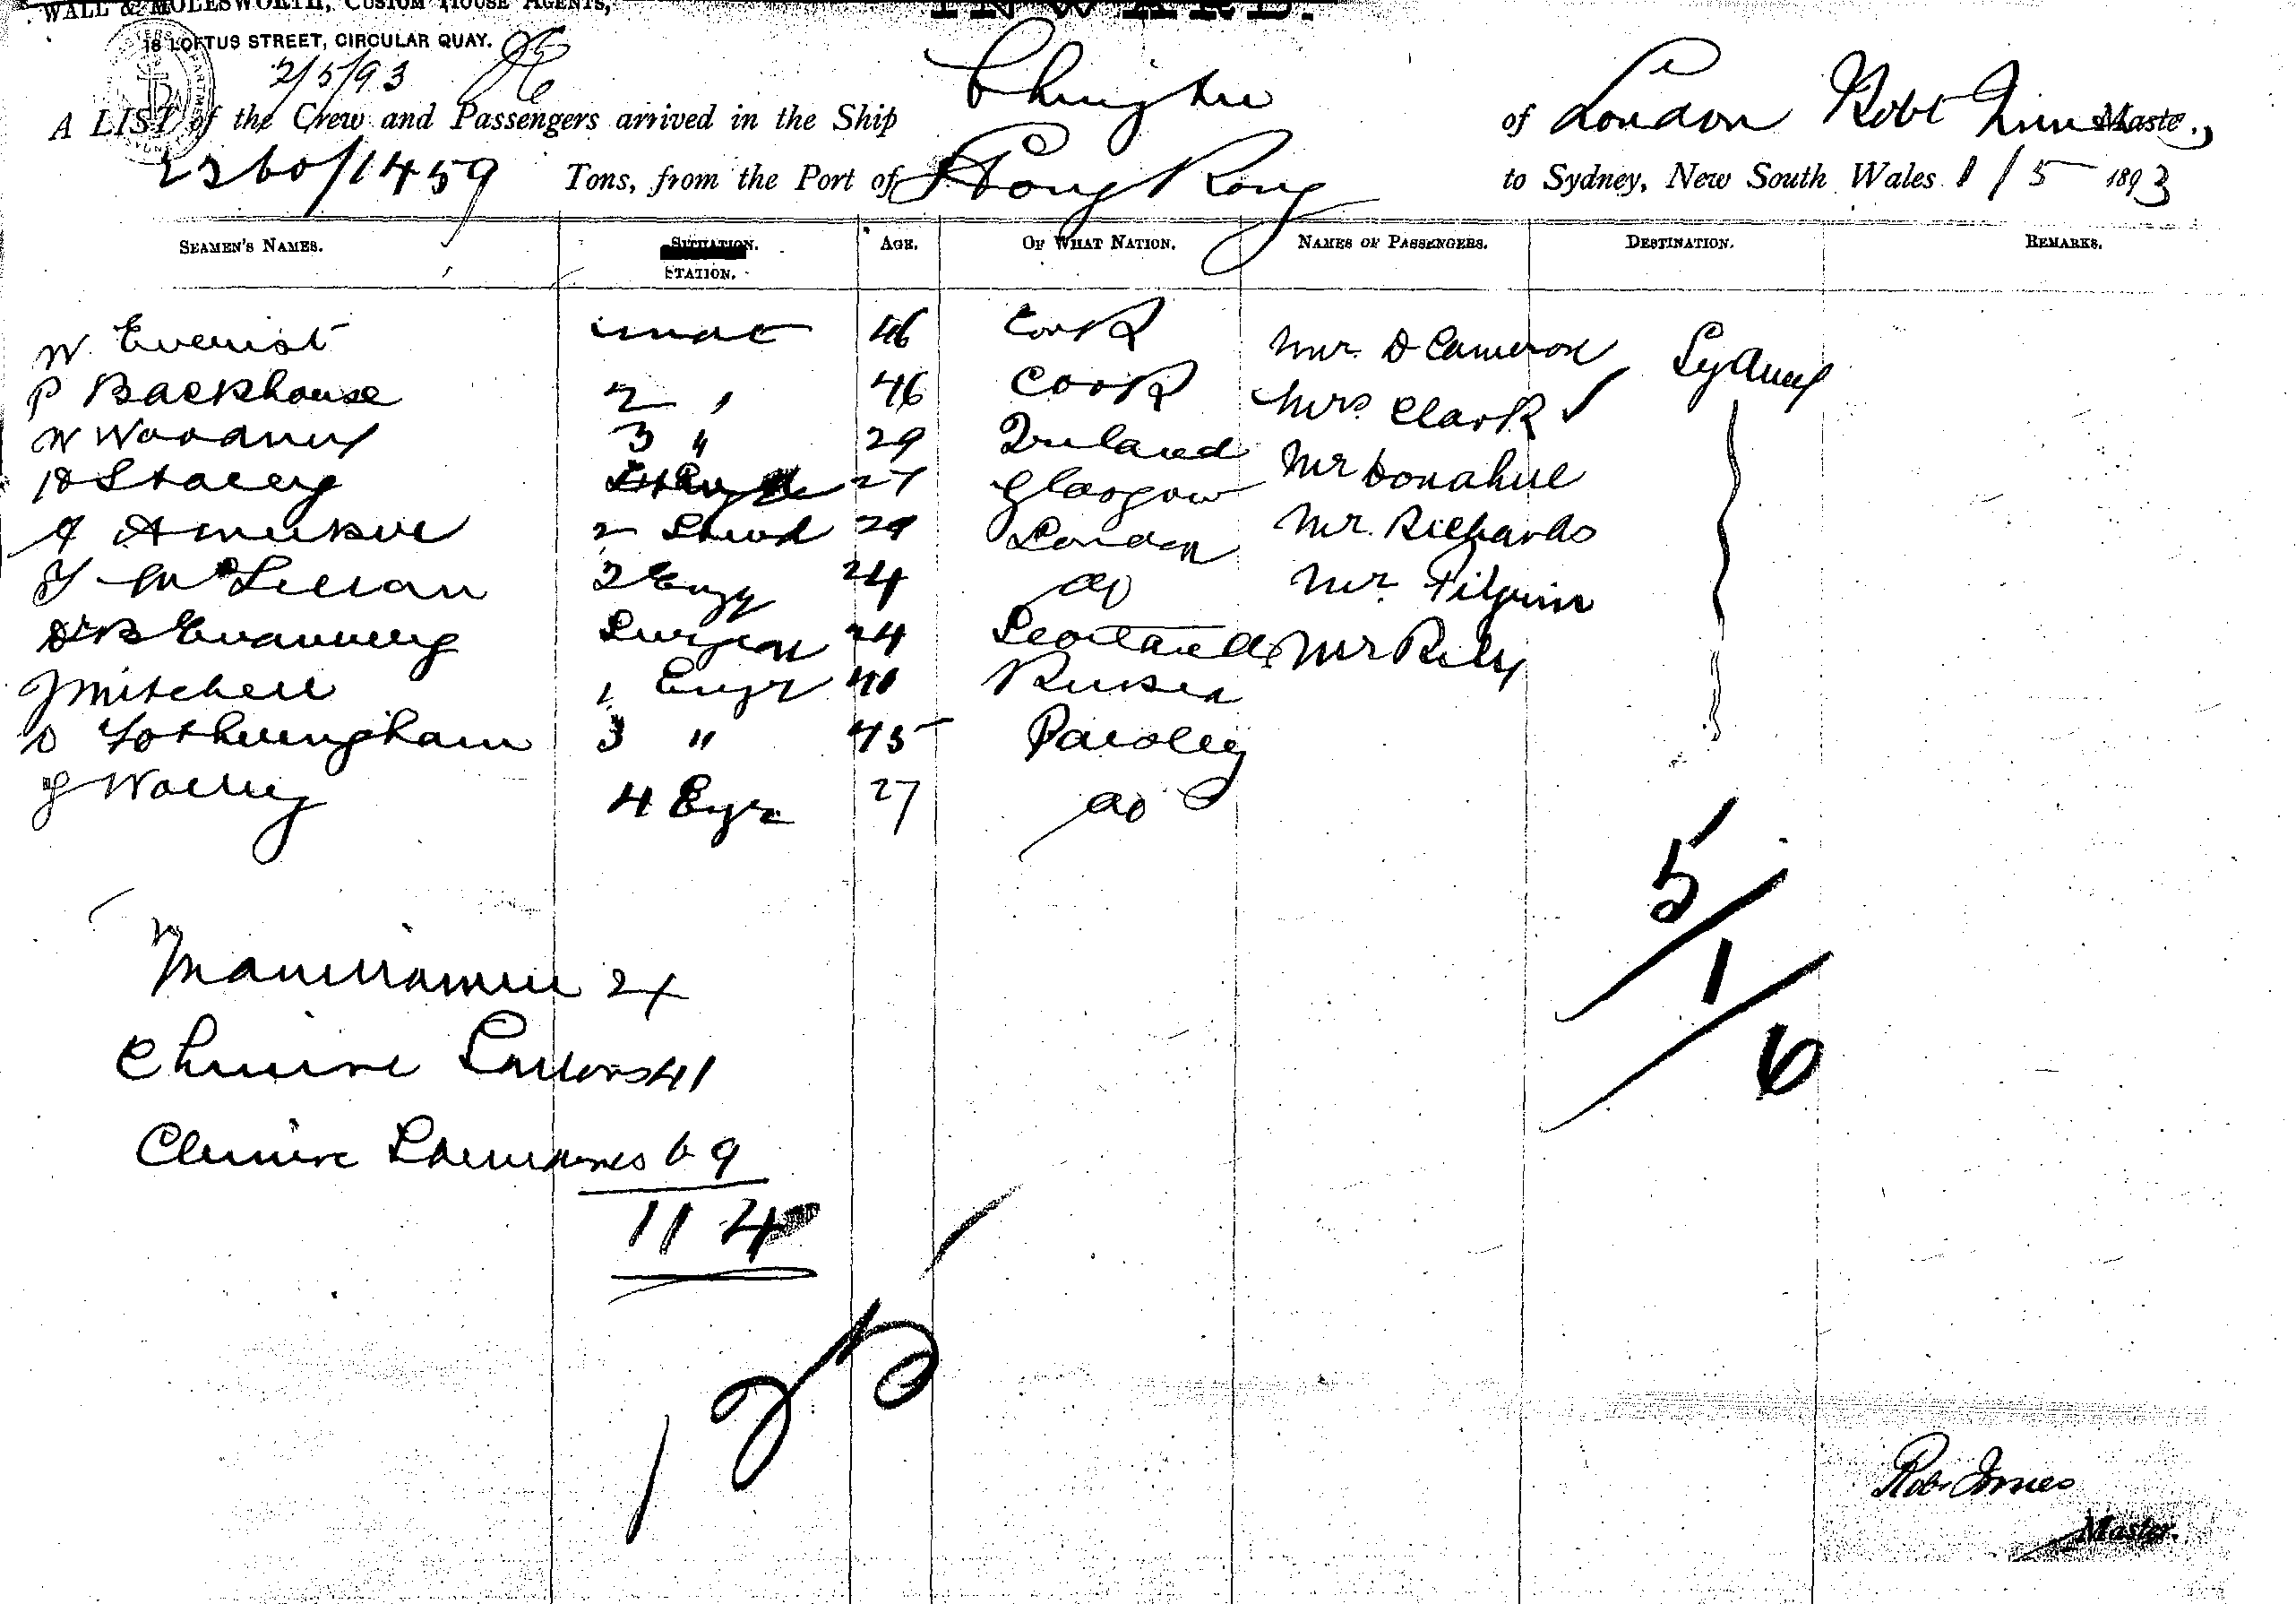 WALL & MOLESWORTH, CUSTOM HOUSE AGENTS,
INWARD.
18 LOFTUS STREET, CIRCULAR QUAY.
2/5/93
A LIST of the Crew and Passengers arrived in the Ship Chingtu of London Robt Innes Master,
2260/1459 Tons, from the Port of Hong Kong to Sydney, New South Wales 1/5 1893
SEAMEN'S NAMES. SITUATION. STATION. AGE. OF WHAT NATION. NAMES OF PASSENGERS. DESTINATION. REMARKS.
W. Everist 1 mate 46 Cork Mr. D Cameron Sydney
P Backhouse 2 " 46 Cook Mrs Clark
W Woodney 3 " 29 Ireland Mr Donahue
D Stacey 27 Glasgow Mr. Richards
2 Stewd 29 London Mr. Pilgrim
McLellan 2 Engr 24 do Mr Rily
Dr Surgeon 24 Scotland
J Mitchell 1 Engr 40 Russia
D Fotheringham 3 " 45 Paisley
4 Egr 27 do
5/
1/
6
Chinese Sailors 41
Chinese 69
114
Rob Innes
Master.